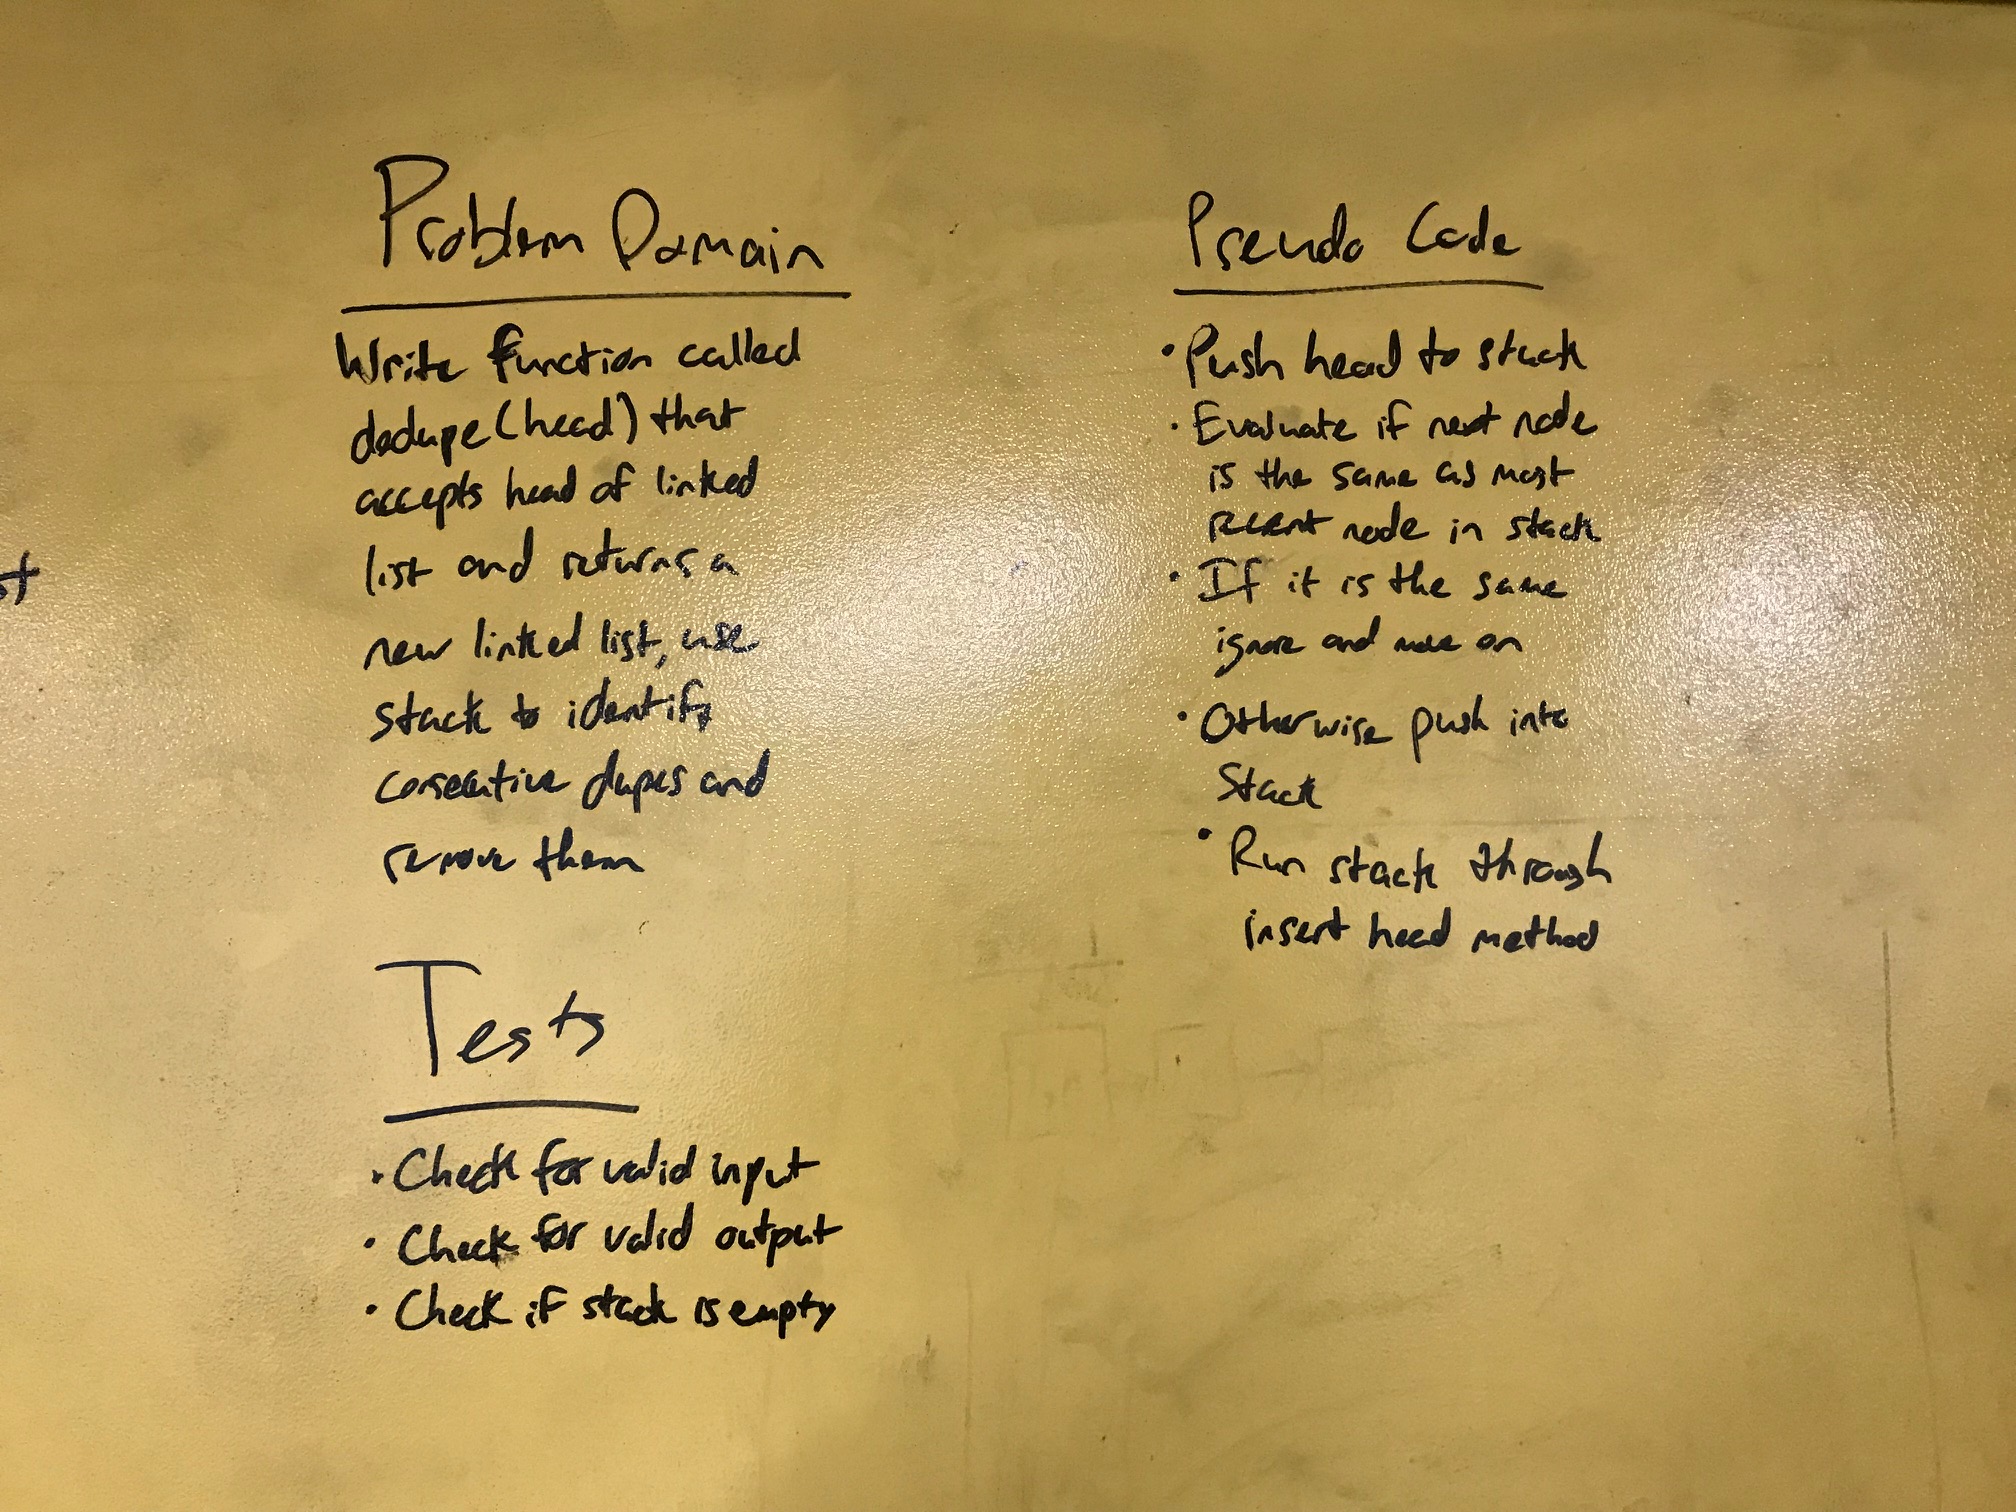 Problem Domain
Write function called
dedupe(head) that
accepts head of linked
list and returns a
new linked list, use
stack to identify
consecutive dupes and
remove them
Tests
• Check for valid input
• Check for valid output
• Check if stack is empty
Pseudo Code
• Push head to stack
• Evaluate if next node
is the same as most
recent node in stack
• If it is the same
ignore and move on
• Otherwise push into
Stack
• Run stack through
insert head method